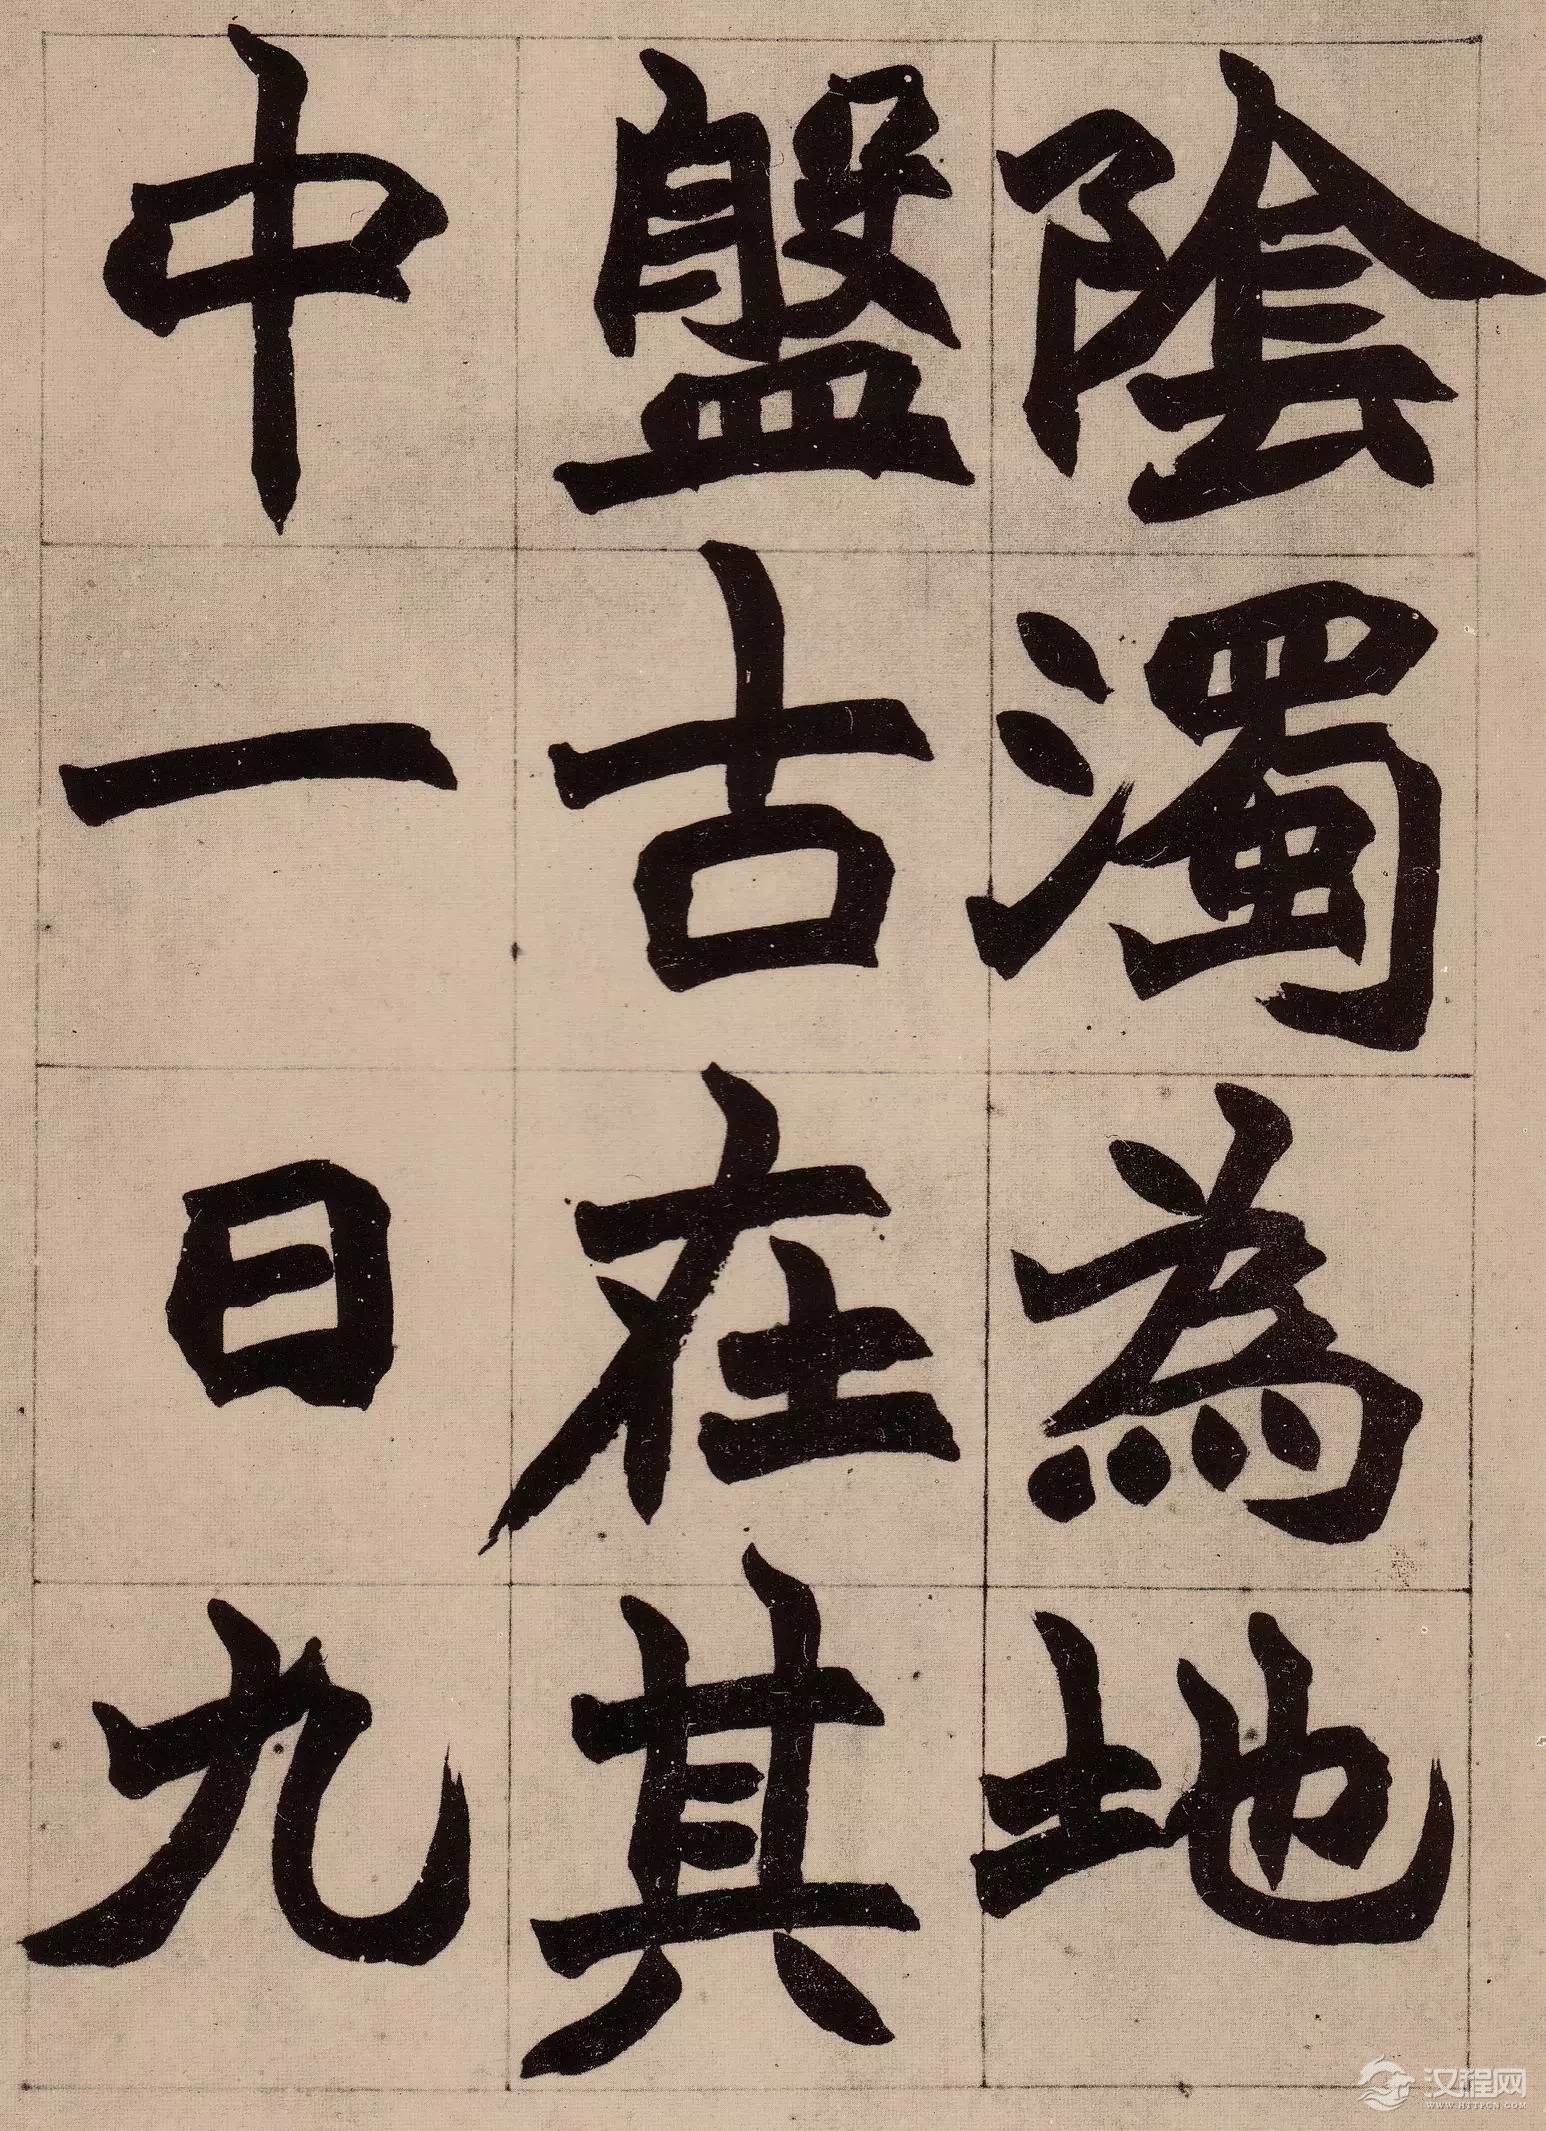 陰濁為地
盤古在其
中一日九
汉程网
WWW.HTTPCN.COM